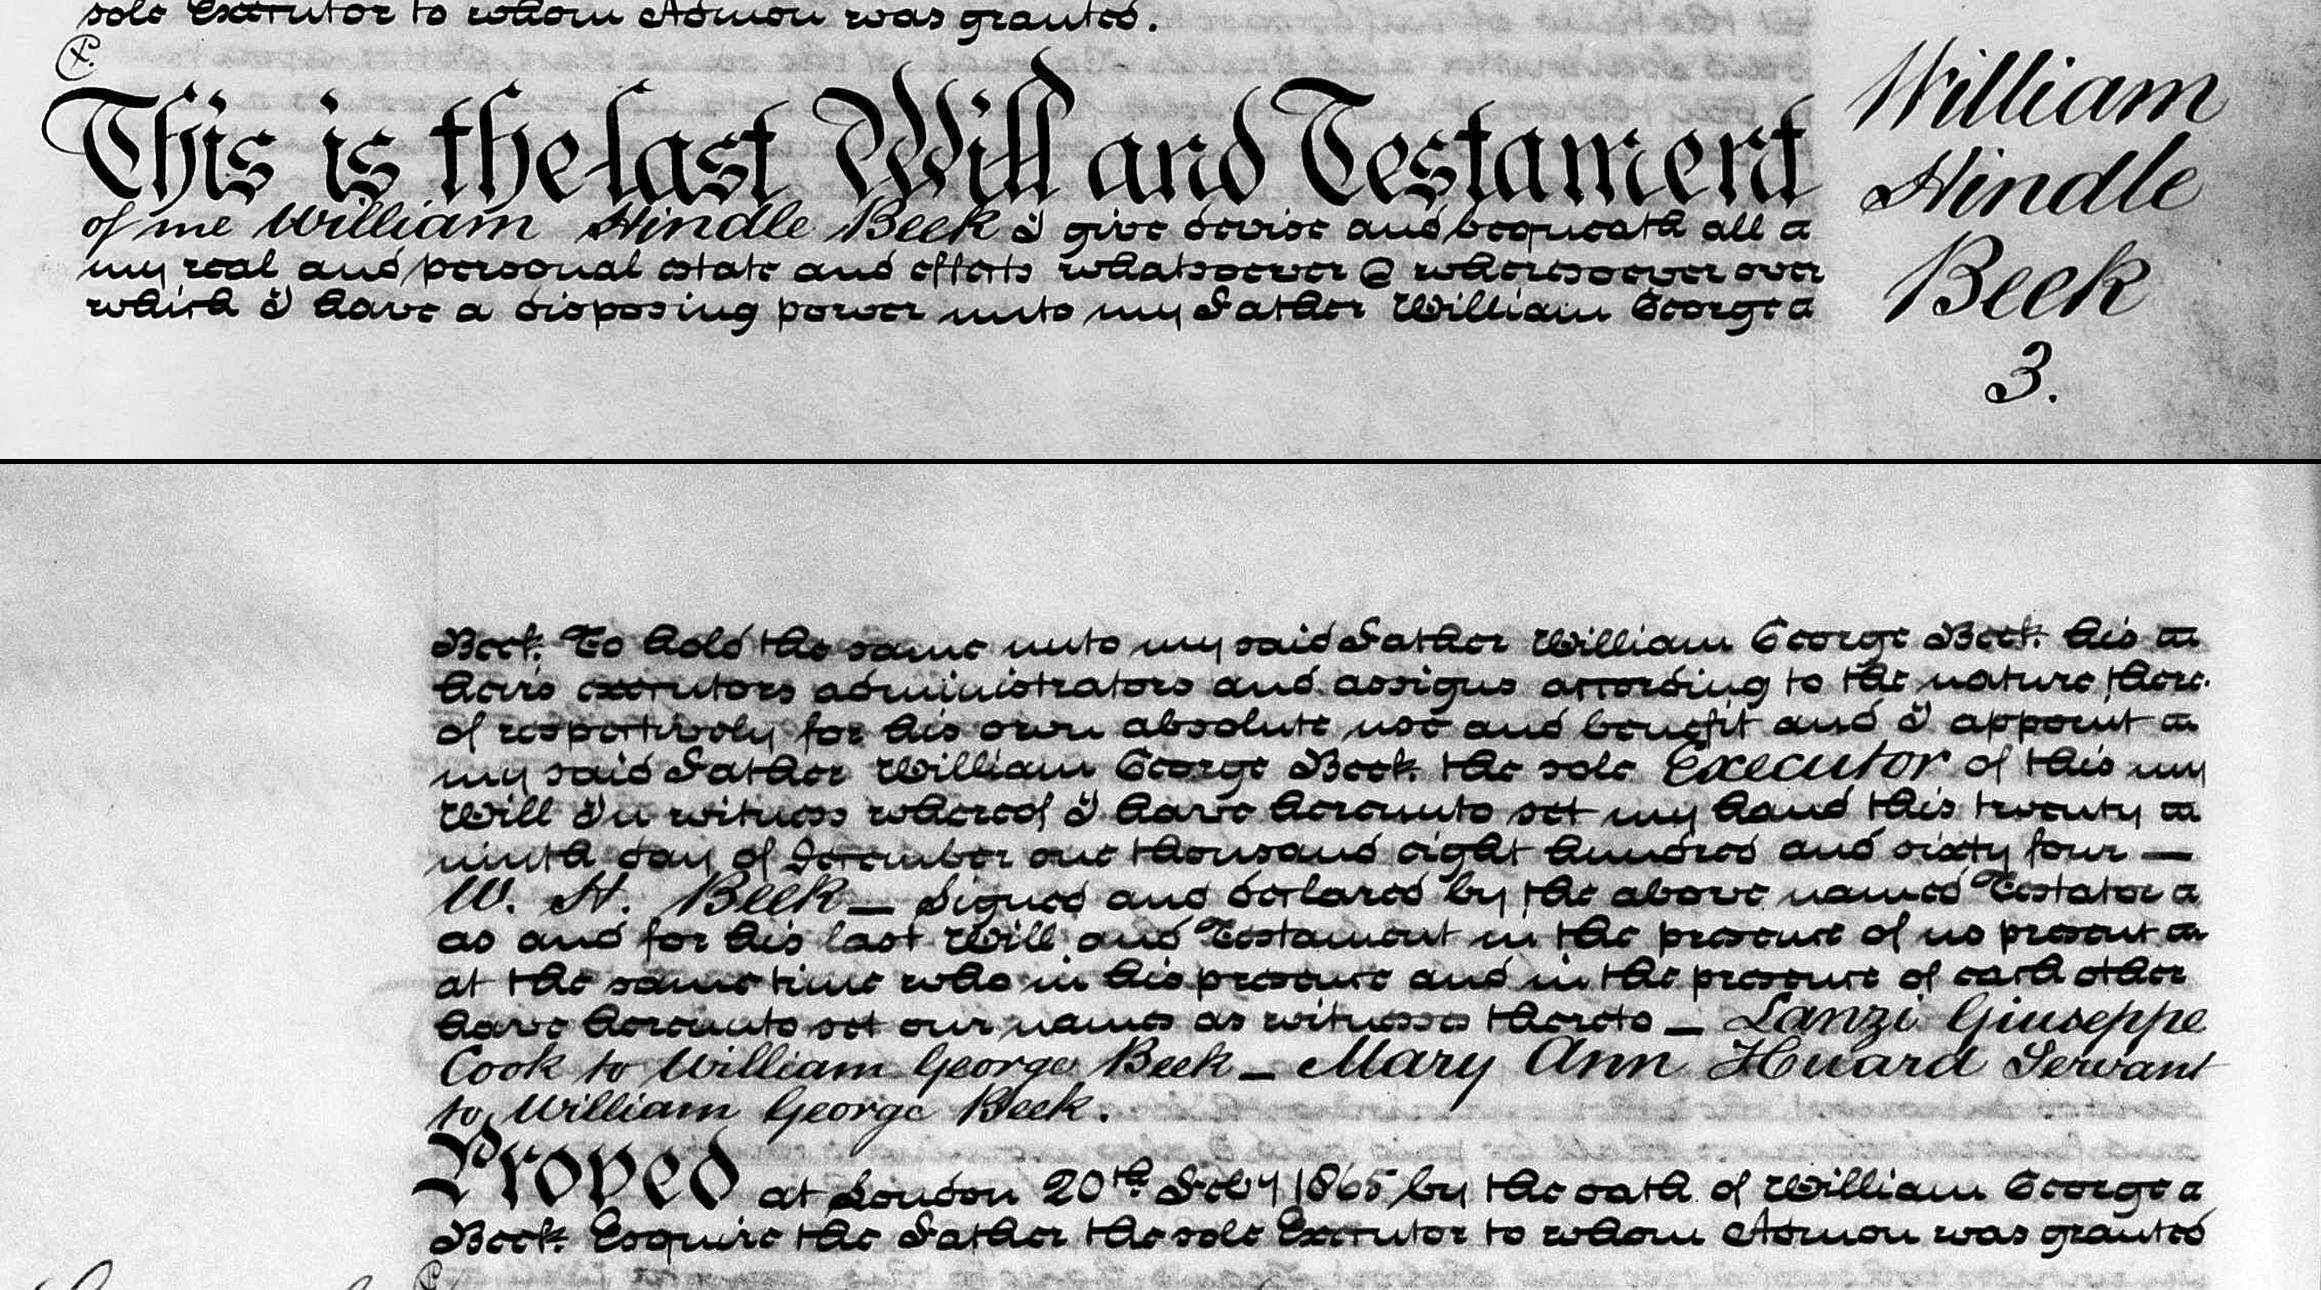 sole Executor to whom Admon was granted.
This is the last Will and Testament
of me William Hindle Beek I give devise and bequeath all
my real and personal estate and effects whatsoever & wheresoever over
which I have a disposing power unto my Father William George
William
Hindle
Beek
3.
Beek To hold the same unto my said Father William George Beek his
heirs executors administrators and assigns according to the nature there
of respectively for his own absolute use and benefit and I appoint
my said Father William George Beek the sole Executor of this my
Will In witness whereof I have hereunto set my hand this twenty
ninth day of December one thousand eight hundred and sixty four —
W. H. Beek — Signed and declared by the above named Testator
as and for his last Will and Testament in the presence of us present
at the same time who in his presence and in the presence of each other
have hereunto set our names as witnesses thereto — Lanzi Giuseppe
Cook to William George Beek — Mary Ann Huard Servant
to William George Beek.
Proved at London 20th Feby 1865 by the oath of William George
Beek Esquire the Father the sole Executor to whom Admon was granted